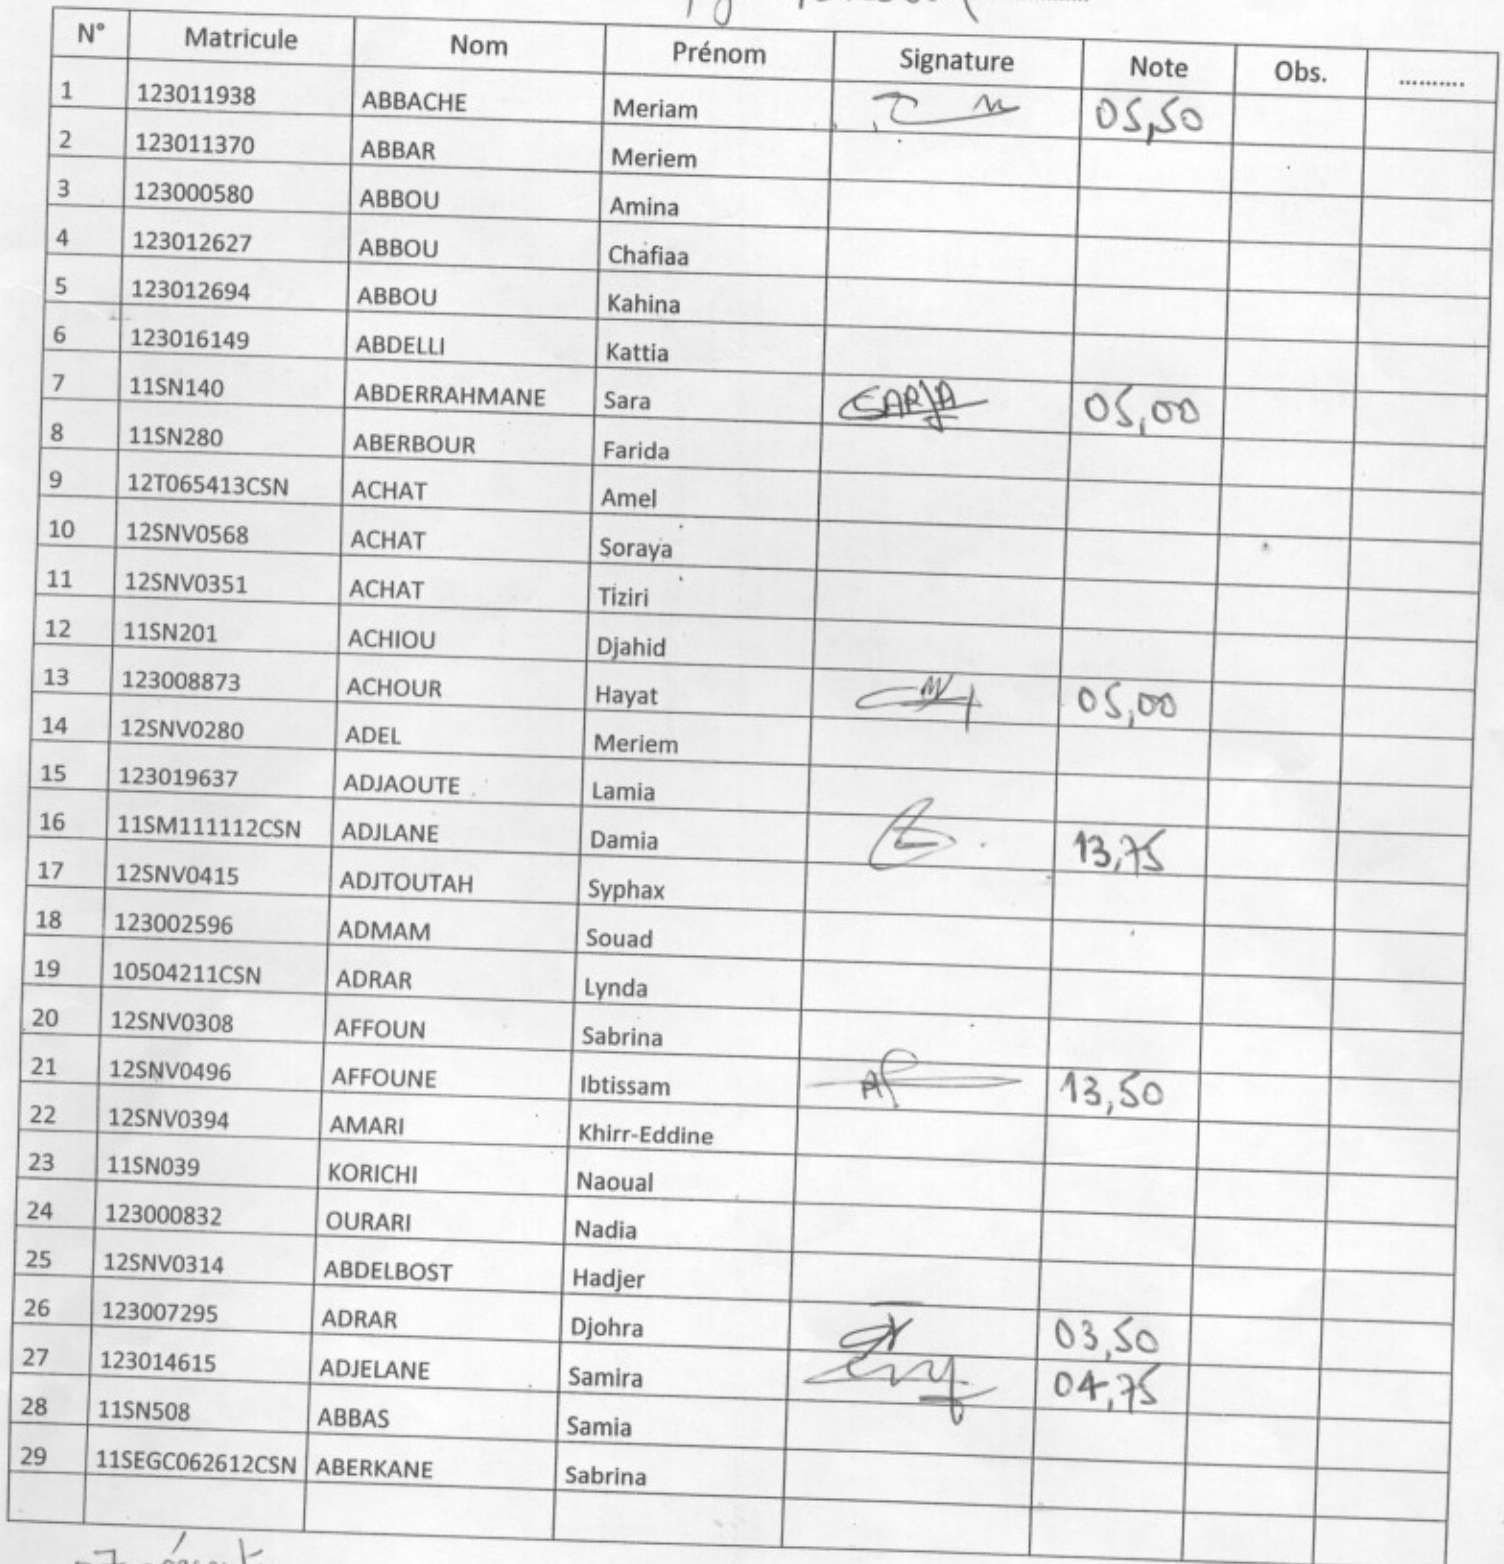 N° Matricule Nom Prénom Signature Note Obs. ..........
1 123011938 ABBACHE Meriam 05,50
2 123011370 ABBAR Meriem
3 123000580 ABBOU Amina
4 123012627 ABBOU Chafiaa
5 123012694 ABBOU Kahina
6 123016149 ABDELLI Kattia
7 11SN140 ABDERRAHMANE Sara SARA 05,00
8 11SN280 ABERBOUR Farida
9 12T065413CSN ACHAT Amel
10 12SNV0568 ACHAT Soraya
11 12SNV0351 ACHAT Tiziri
12 11SN201 ACHIOU Djahid
13 123008873 ACHOUR Hayat 05,00
14 12SNV0280 ADEL Meriem
15 123019637 ADJAOUTE Lamia
16 11SM111112CSN ADJLANE Damia 13,75
17 12SNV0415 ADJTOUTAH Syphax
18 123002596 ADMAM Souad
19 10504211CSN ADRAR Lynda
20 12SNV0308 AFFOUN Sabrina
21 12SNV0496 AFFOUNE Ibtissam 13,50
22 12SNV0394 AMARI Khirr-Eddine
23 11SN039 KORICHI Naoual
24 123000832 OURARI Nadia
25 12SNV0314 ABDELBOST Hadjer
26 123007295 ADRAR Djohra 03,50
27 123014615 ADJELANE Samira 04,75
28 11SN508 ABBAS Samia
29 11SEGC062612CSN ABERKANE Sabrina